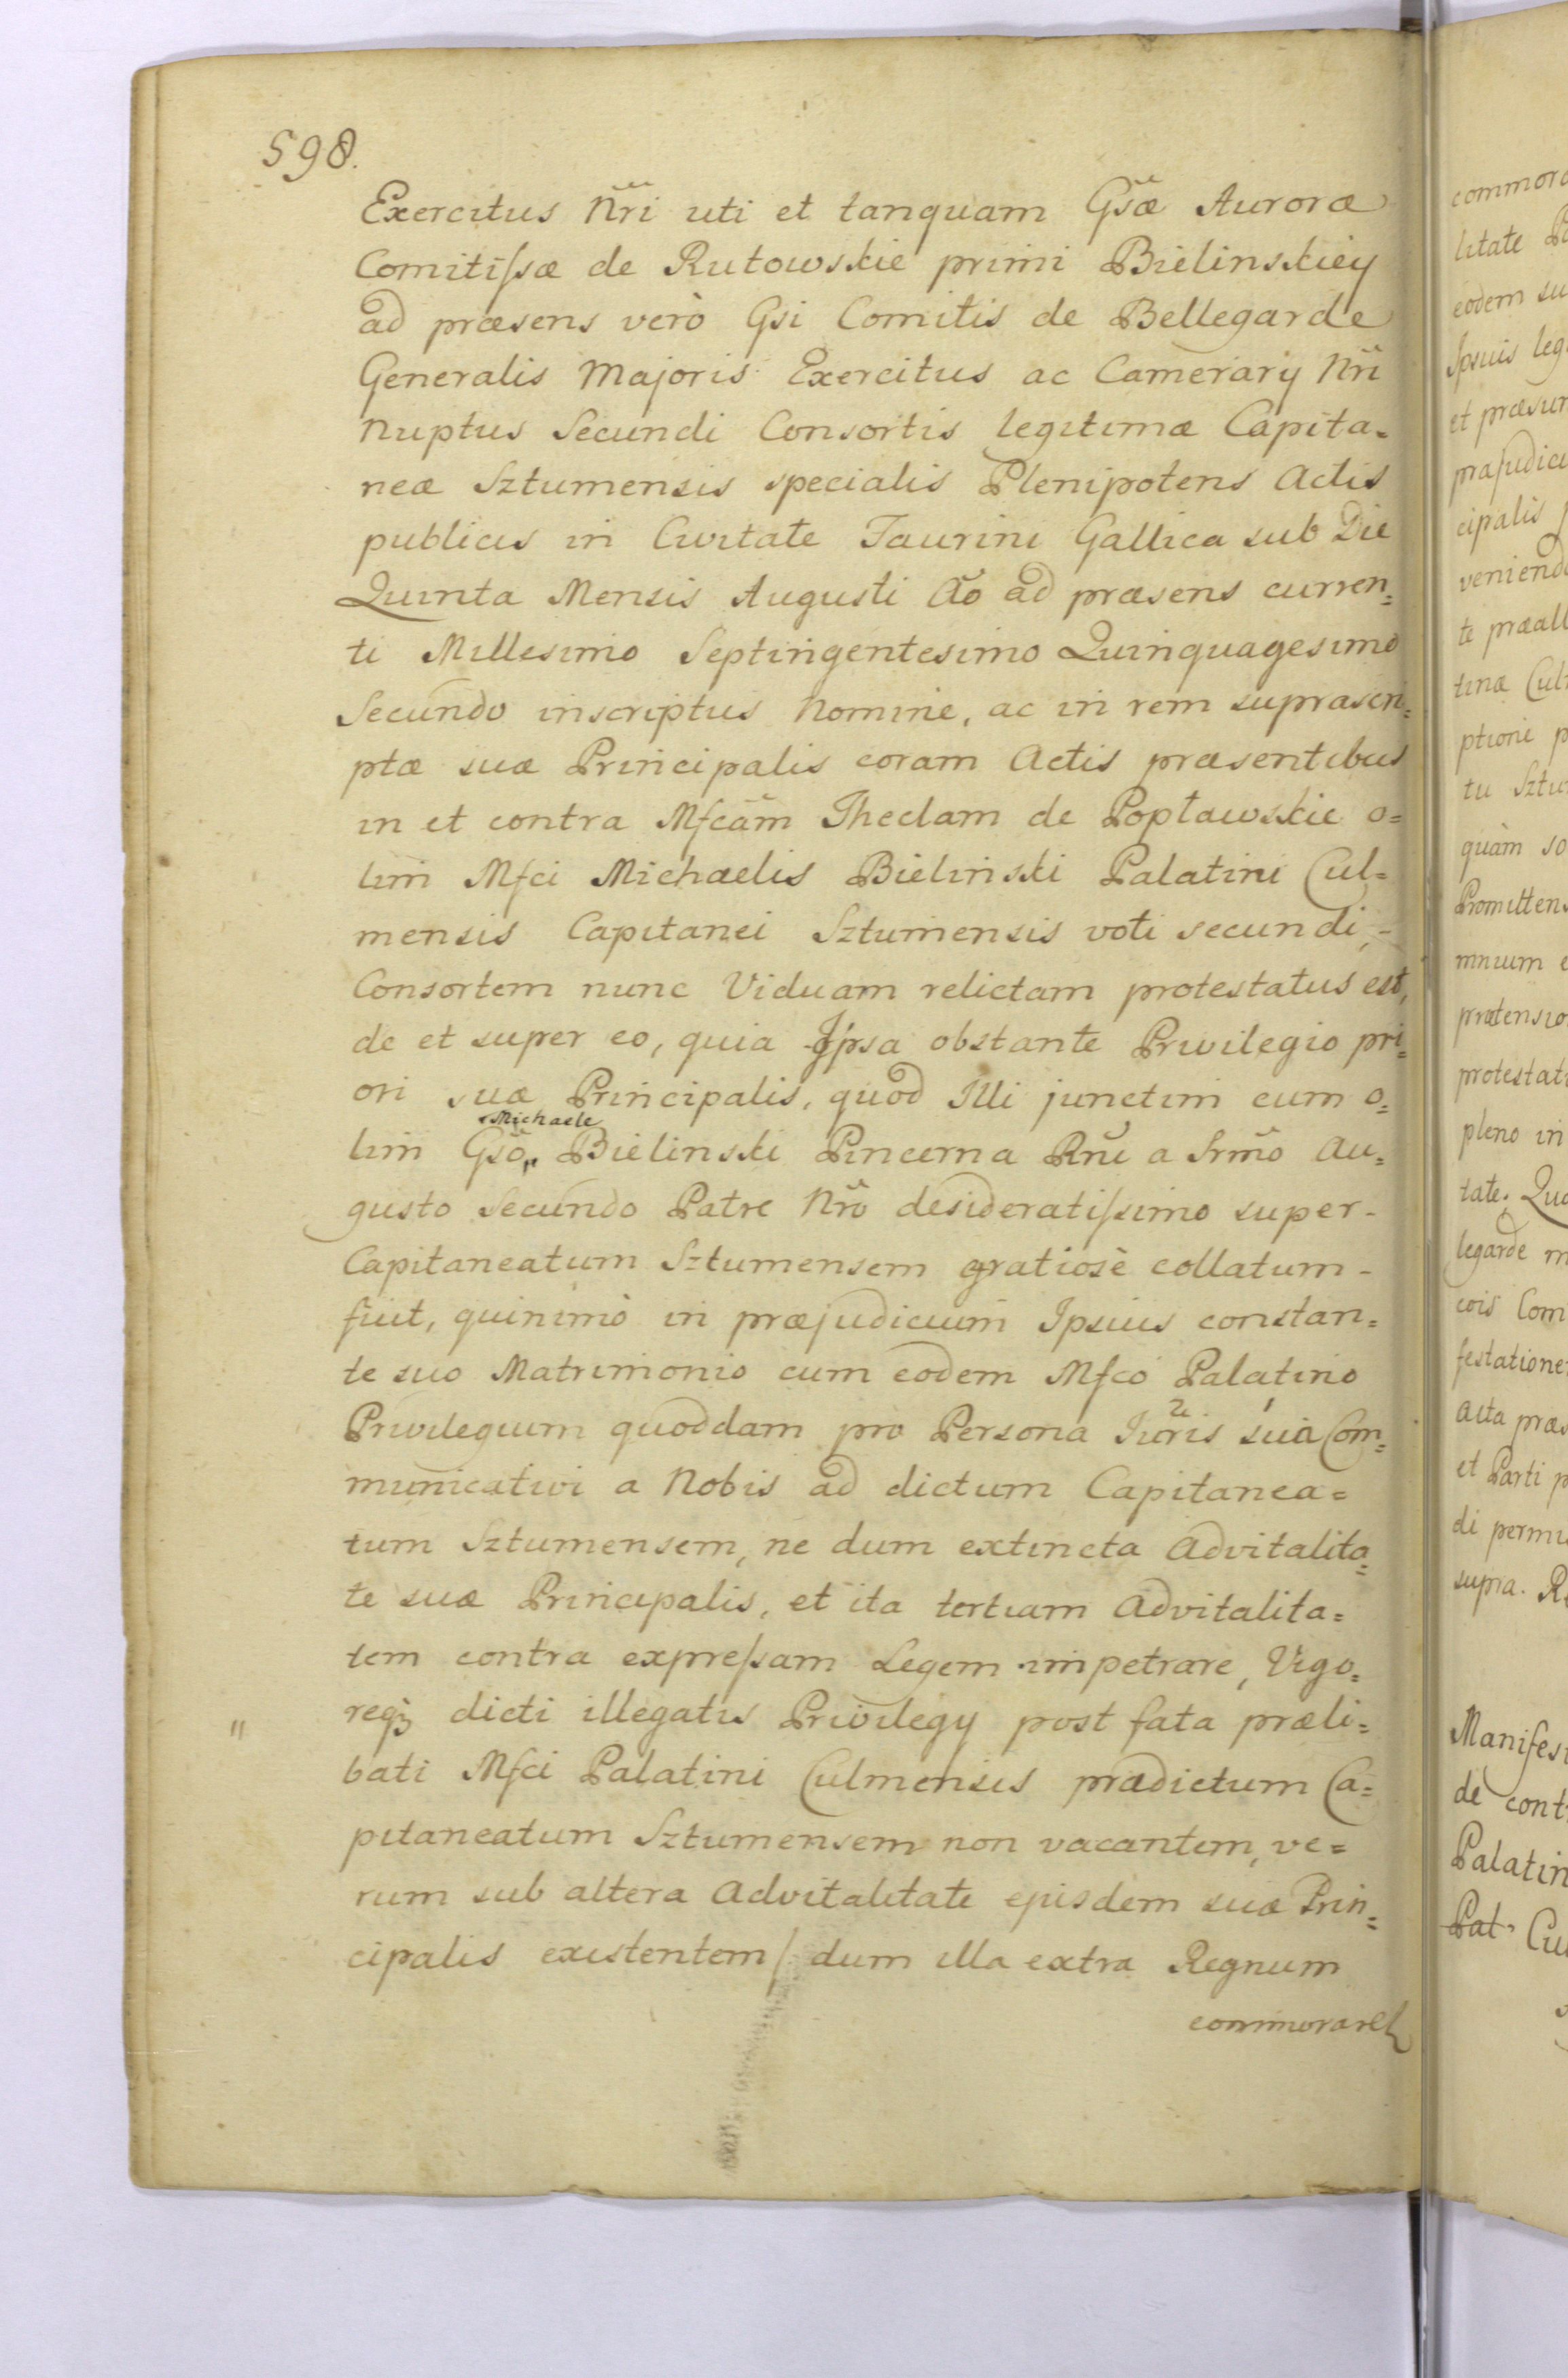 598.
Exercitus Nr̃i uti et tanquam Gsæ̃ Auroræ
Comitissæ de Rutowskie primi Bielinskiey
ad præsens verò Gsi Comitis de Bellegarde
Generalis Majoris Exercitus ac Camerarij Nr̃i
Nuptus Secundi Consortis legitimæ Capita=
neæ Sztumensis specialis Plenipotens Actis
publicis in Civitate Taurini Gallica sub Die
Quinta Mensis Augusti Aõ ad præsens curren=
ti Millesimo Septingentesimo Quinquagesimo
Secundo inscriptus Nomine, ac in rem suprascri=
ptæ suæ Principalis coram Actis præsentibus
in et contra Mfcam̃ Theclam de Popławskie o=
lim Mfci Michaelis Bielinski Palatini Cul=
mensis Capitanei Sztumensis voti secundi,-
Consortem nunc Viduam relictam protestatus est,
de et super eo, quia Ipsa obstante Privilegio pri=
ori suæ Principalis, quod Illi junctim cum o=
lim Gsõ Michaele Bielinski Pincerna Rñi a Srm̃o Au=
gusto Secundo Patre Nr̃o desideratissimo super-
Capitaneatum Sztumensem gratiosè collatum-
fuit, quinimò in præjudicium Ipsius constan=
te suo Matrimonio cum eodem Mfco Palatino
Privilegium quoddam pro Persona 2 Iuris 1 sua Com=
municativi a Nobis ad dictum Capitanea=
tum Sztumensem, ne dum extincta Advitalita=
te suæ Principalis, et ita tertiam Advitalita=
tem contra expressam Legem impetrare, Vigo=
req3 dicti illegatis Privilegij post fata præli=
bati Mfci Palatini Culmensis prædictum Ca=
pitaneatum Sztumensem non vacantem, ve=
rum sub altera Advitalitate ejusdem suæ Prin=
cipalis existentem/ dum illa extra Regnum
commoraret
commora
litate
eodem su
Ipsius leg
et præsu
præjudici
cipalis
veniend
te præall
tinæ Cul
ptione p
tu Sztu
quàm so
Promittens
mnium e
prætensio
protestat
pleno in
tate. Quo
legarde m
cois Com
festatione
Acta præs
et Parti p
di permi
supra.
Manifest
de cont
Palatin
Pat. Cu